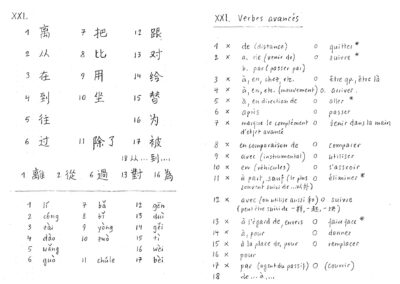 XXI.
1 离 7 把 12 跟
2 从 8 比 13 对
3 在 9 用 14 给
4 到 10 坐 15 替
5 往 16 为
6 过 11 除了 17 被
18 从...到...
1 離 2 從 6 過 13 對 16 為
1 lí 7 bǎ 12 gēn
2 cóng 8 bǐ 13 duì
3 zài 9 yòng 14 gěi
4 dào 10 zuò 15 tì
5 wǎng 16 wèi
6 guò 11 chúle 17 bèi
XXI. Verbes avancés
1 × de (distance) O quitter *
2 × a. de (venir de) O suivre *
b. par (passer par)
3 × à, en, chez, etc. O être qp., être là
4 × à, en, etc. (mouvement) O arriver
5 × à, en direction de O aller *
6 × après O passer
7 × marque le complément O tenir dans la main
d'objet avancé
8 × en comparaison de O comparer
9 × avec (instrumental) O utiliser
10 × en (véhicules) O s'asseoir
11 × à part, sauf (le plus O éliminer *
souvent suivi de
12 × avec (on utilise aussi 和) O suivre
(peut être suivi de
13 × à l'égard de, envers O faire face *
14 × à, pour O donner
15 × à la place de, pour O remplacer
16 × pour
17 × par (agent du passif) O (couvrir)
18 de ... à ...